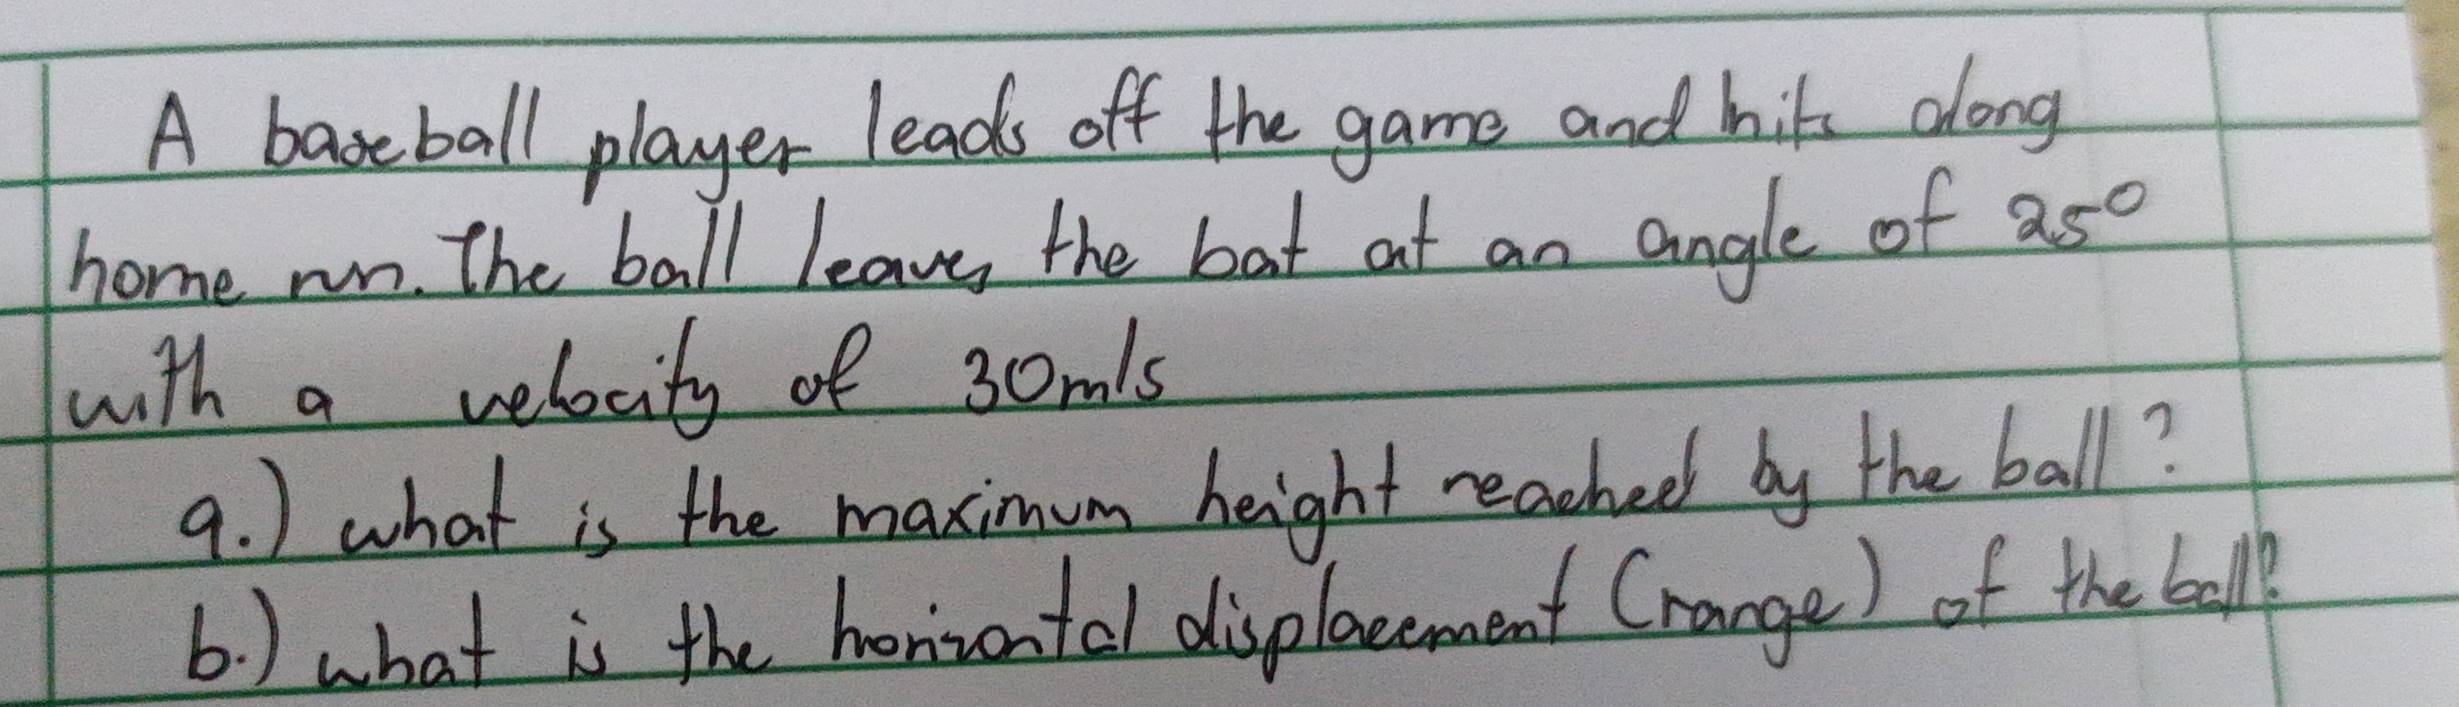 A baseball player leads off the game and hits along
home run. The ball leaves the bat at an angle of 25°
with a velocity of 30m/s
a.) what is the maximum height reached by the ball?
b.) what is the horizontal displacement (range) of the ball?